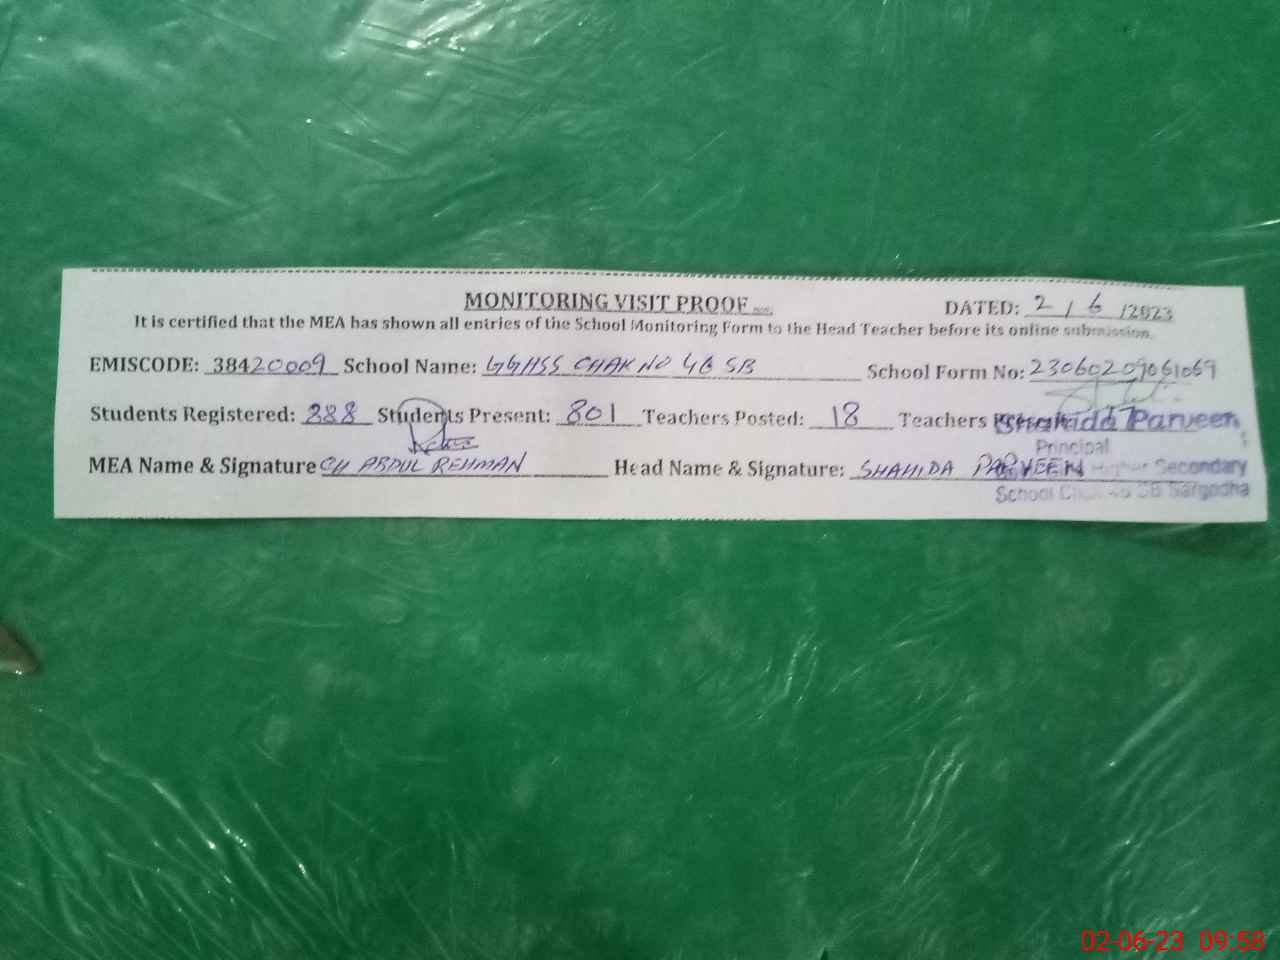 MONITORING VISIT PROOF
DATED: 2 / 6 /2023
It is certified that the MEA has shown all entries of the School Monitoring Form to the Head Teacher before its online submission.
EMISCODE: 38420009 School Name: GGHSS CHAK NO 46 SB School Form No: 23060209061069
Students Registered: 888 Students Present: 801 Teachers Posted: 18 Teachers
Shahida Parveen
Principal
MEA Name & Signature CH ABDUL REHMAN Head Name & Signature: SHAHIDA PARVEEN Higher Secondary
School Chak 46 SB Sargodha
02-06-23 09:58